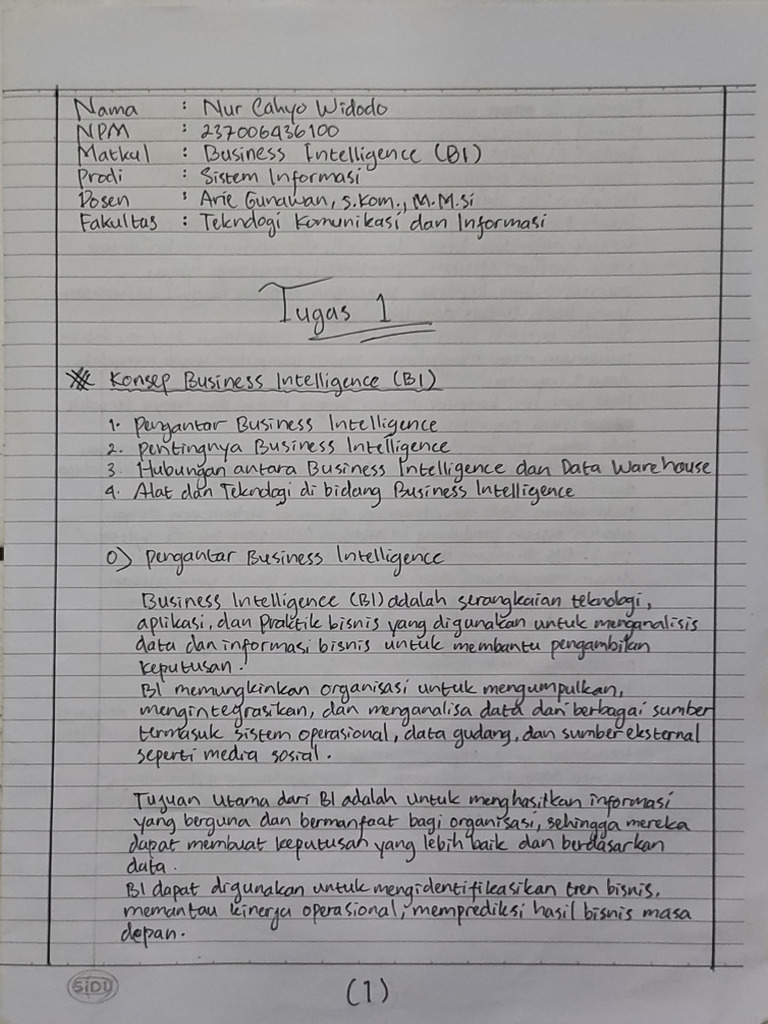 Nama : Nur Cahyo Widodo
NPM : 237006436100
Matkul : Business Intelligence (BI)
Prodi : Sistem Informasi
Dosen : Arie Gunawan, S.Kom., M.M.Si
Fakultas : Teknologi Komunikasi dan Informasi
Tugas 1
Konsep Business Intelligence (BI)
1. Pengantar Business Intelligence
2. Pentingnya Business Intelligence
3. Hubungan antara Business Intelligence dan Data Warehouse
4. Alat dan Teknologi di bidang Business Intelligence
0) Pengantar Business Intelligence
Business Intelligence (BI) adalah serangkaian teknologi,
aplikasi, dan Praktik bisnis yang digunakan untuk menganalisis
data dan informasi bisnis untuk membantu pengambilan
keputusan.
BI memungkinkan organisasi untuk mengumpulkan,
mengintegrasikan, dan menganalisa data dari berbagai sumber
termasuk sistem operasional, data gudang, dan sumber eksternal
seperti media sosial.
Tujuan Utama dari BI adalah untuk menghasilkan informasi
yang berguna dan bermanfaat bagi organisasi, sehingga mereka
dapat membuat keputusan yang lebih baik dan berdasarkan
data.
BI dapat digunakan untuk mengidentifikasikan tren bisnis,
memantau kinerja operasional, memprediksi hasil bisnis masa
depan.
SIDU
(1)